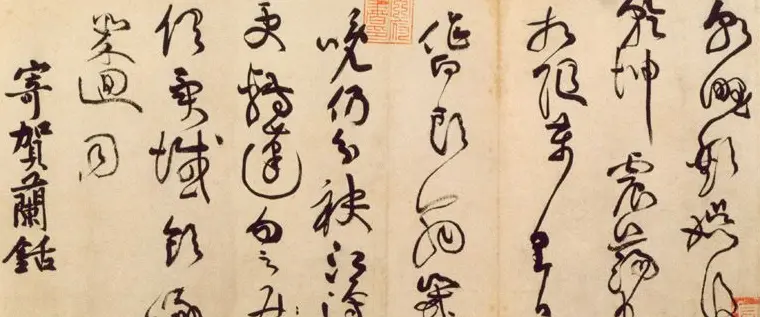 朝野歡娛後
乾坤震蕩
相隨萬里日
作白頭翁歲
晚仍分袂江邊
更轉蓬勿云
俱異域飲啄
幾回同
寄賀蘭銛